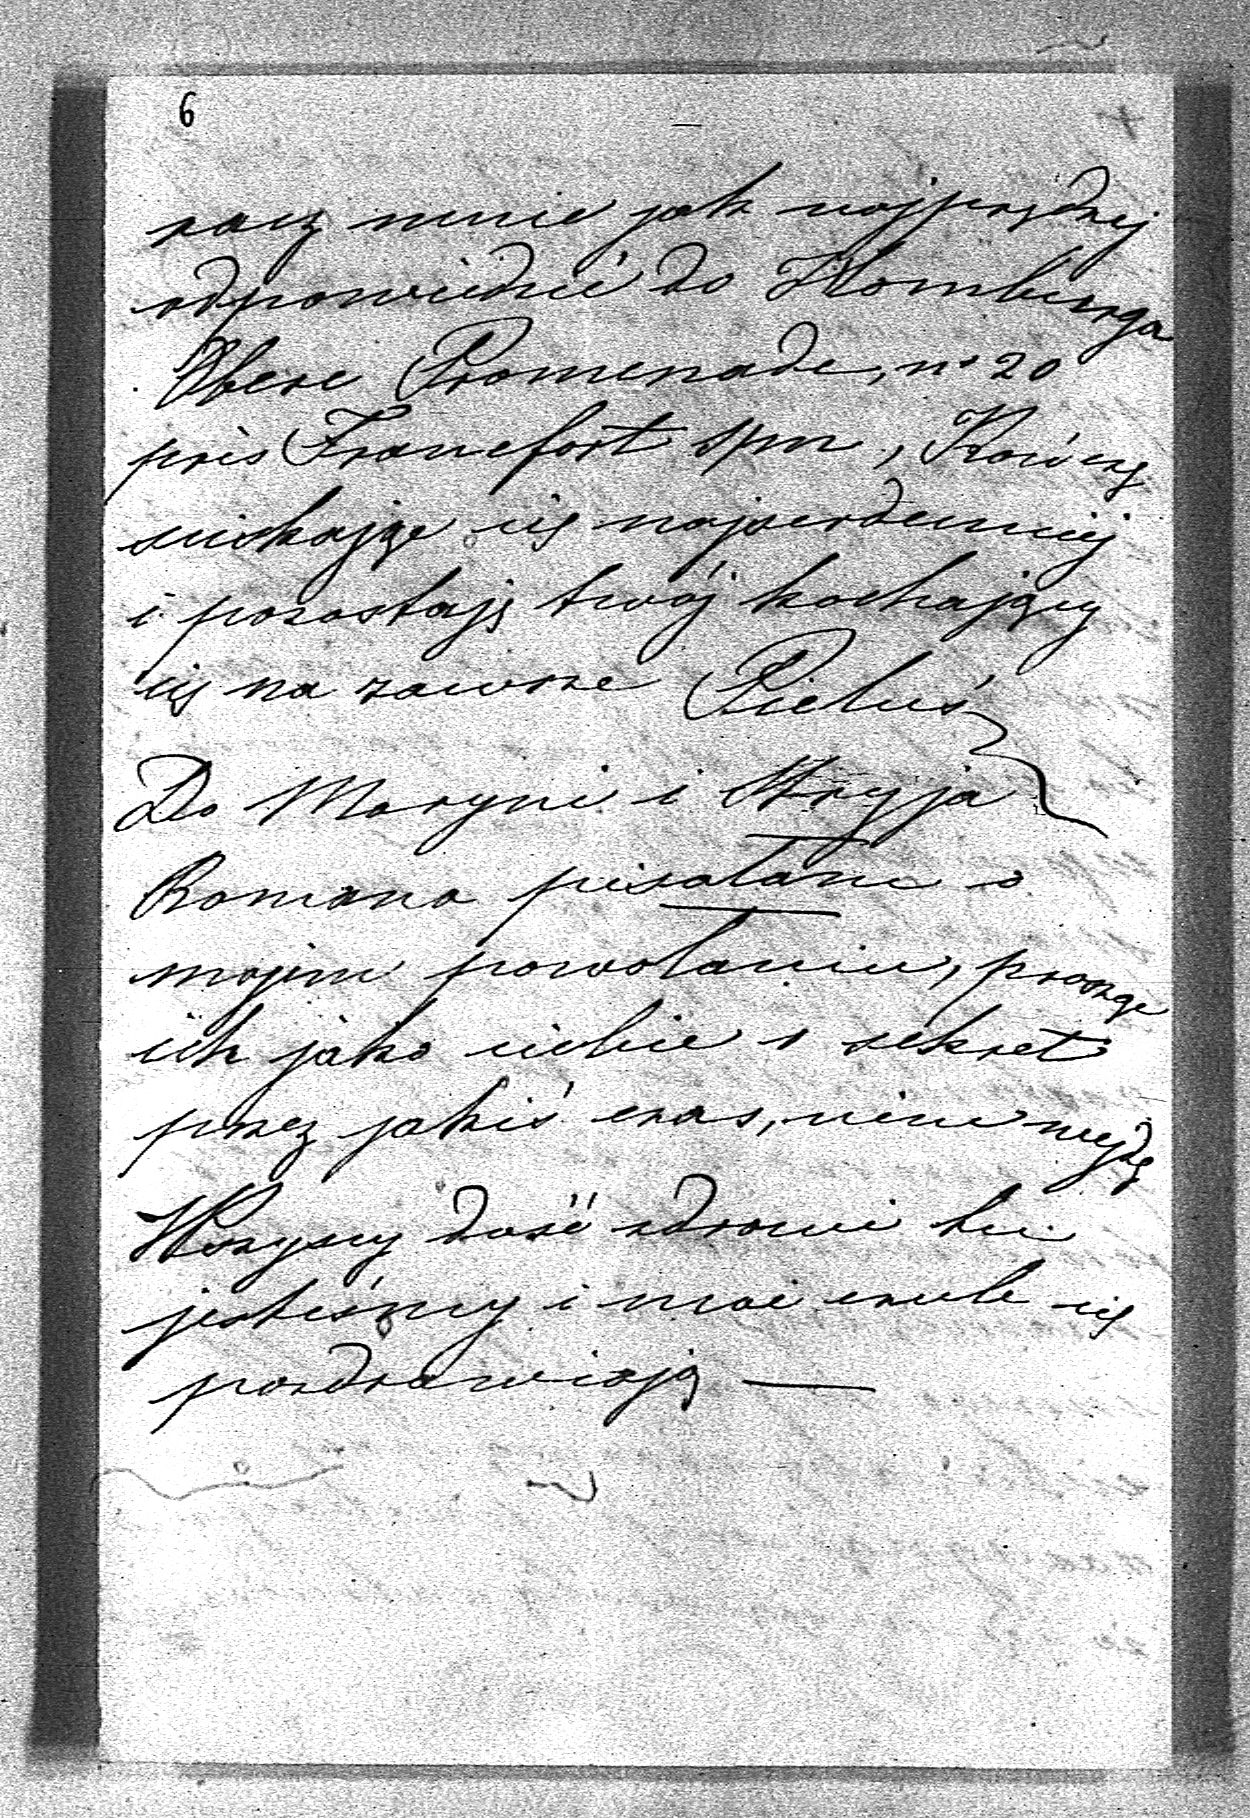 6
racz mnie jak najprędzej
odpowiedzieć do Homburga
Obere Promenade, no 20
près Francfort s/m, Kończę
sciskając cię najserdeczniej
i pozostaję twój kochający
cię na zawsze
Do Maryni i Stryja
Romana pisałam o
mojem powołaniu, prosząc
ich jako ciebie o sekret
przez jakiś czas, nim wejdę
Wszyscy dość zdrowi tu
jesteśmy i moi czule cię
pozdrawiają —